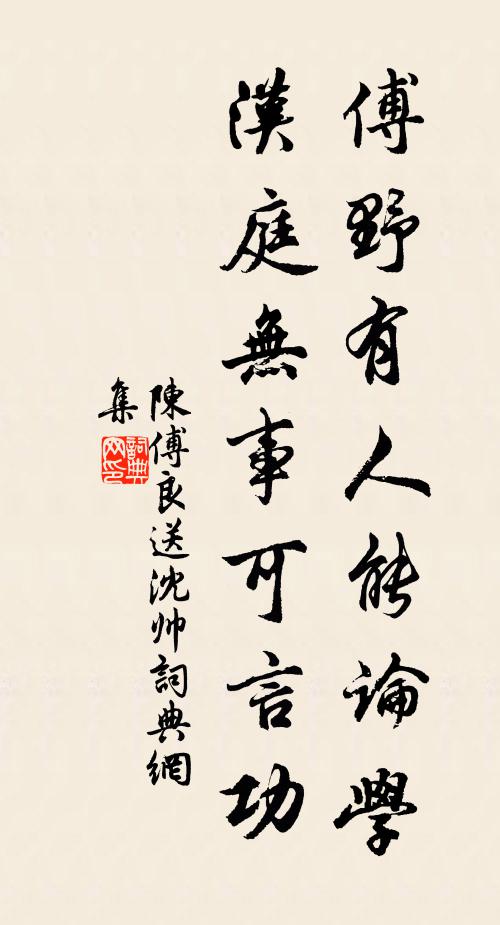 傅野有人能論學
漢庭無事可言功
陳傅良送沈帅詞典網
集
詞典
网印